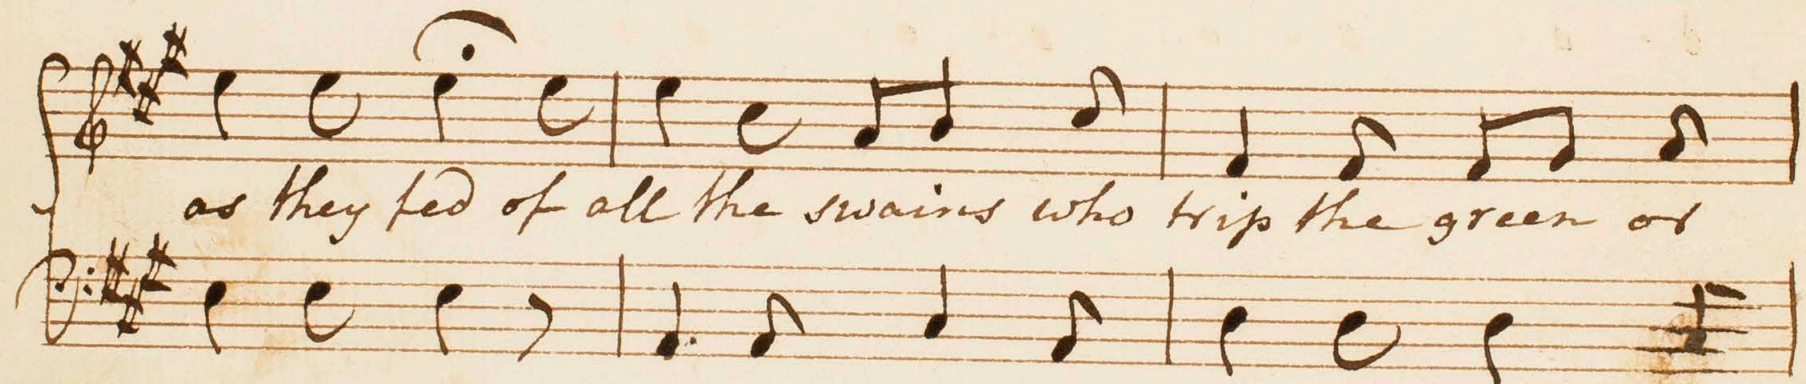 as they fed of all the swains who trip the green or